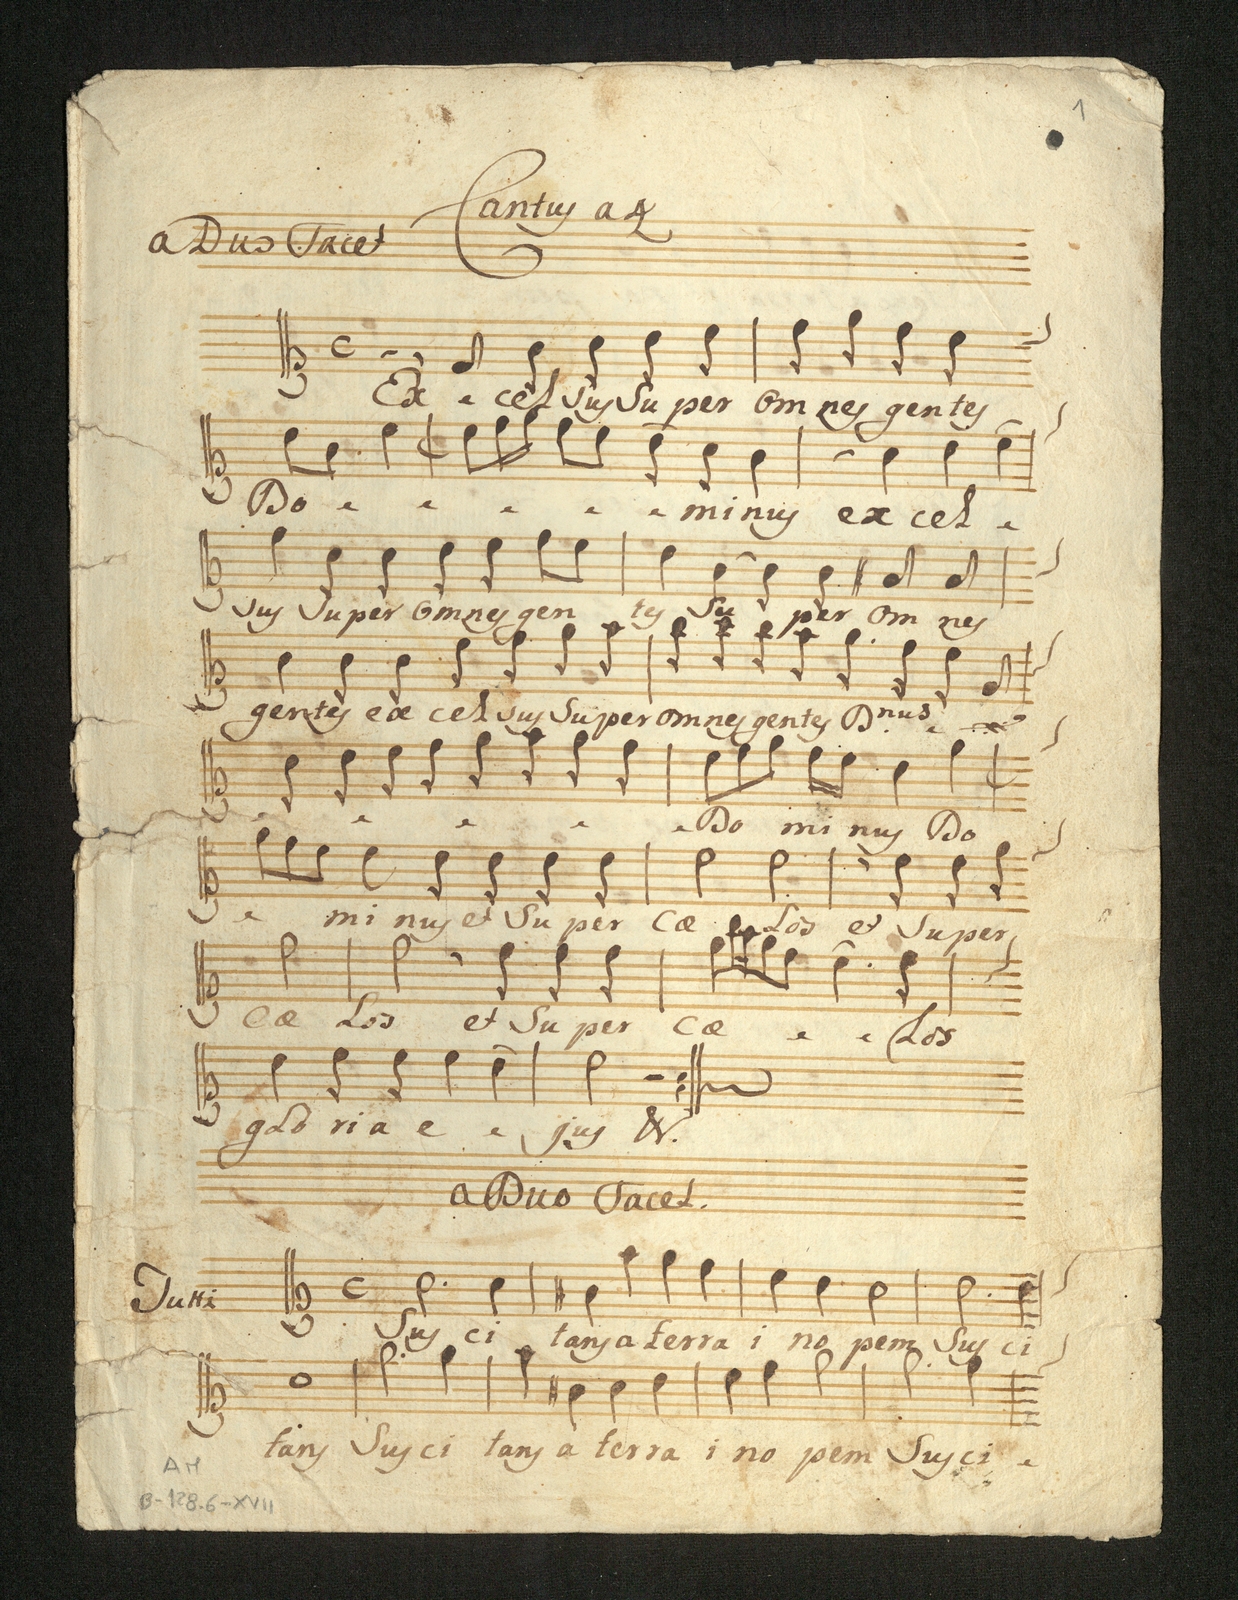 1
Cantus a 4
a Duo Tacet
Ex - cel sus Su per Om nes gentes
Do - - - - - minus ex cel -
sus Super Omnes gen tes Su per Om nes
gentes ex cel sus Super omnes gentes Dnus -
- - - - - Do mi nus Do
- mi nus et Su per Cæ Los et Super
Cæ Los et Su per Cæ - - Los
glo ria e - jus
a Duo Tacet.
Tutti
Sus ci tans a terra i no pem Sus ci
tans Sus ci tans a terra i no pem Sus ci -
AM
B-128.6-XVII